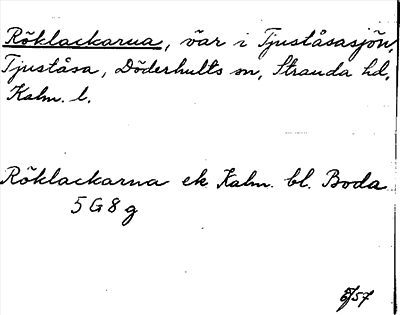 Röklackarna, öar i Tjuståsasjön,
Tjuståsa, Döderhults sn, Stranda hd,
Kalm. l.
Röklackarna ek Kalm. bl. Boda
5 G 8 g
/57